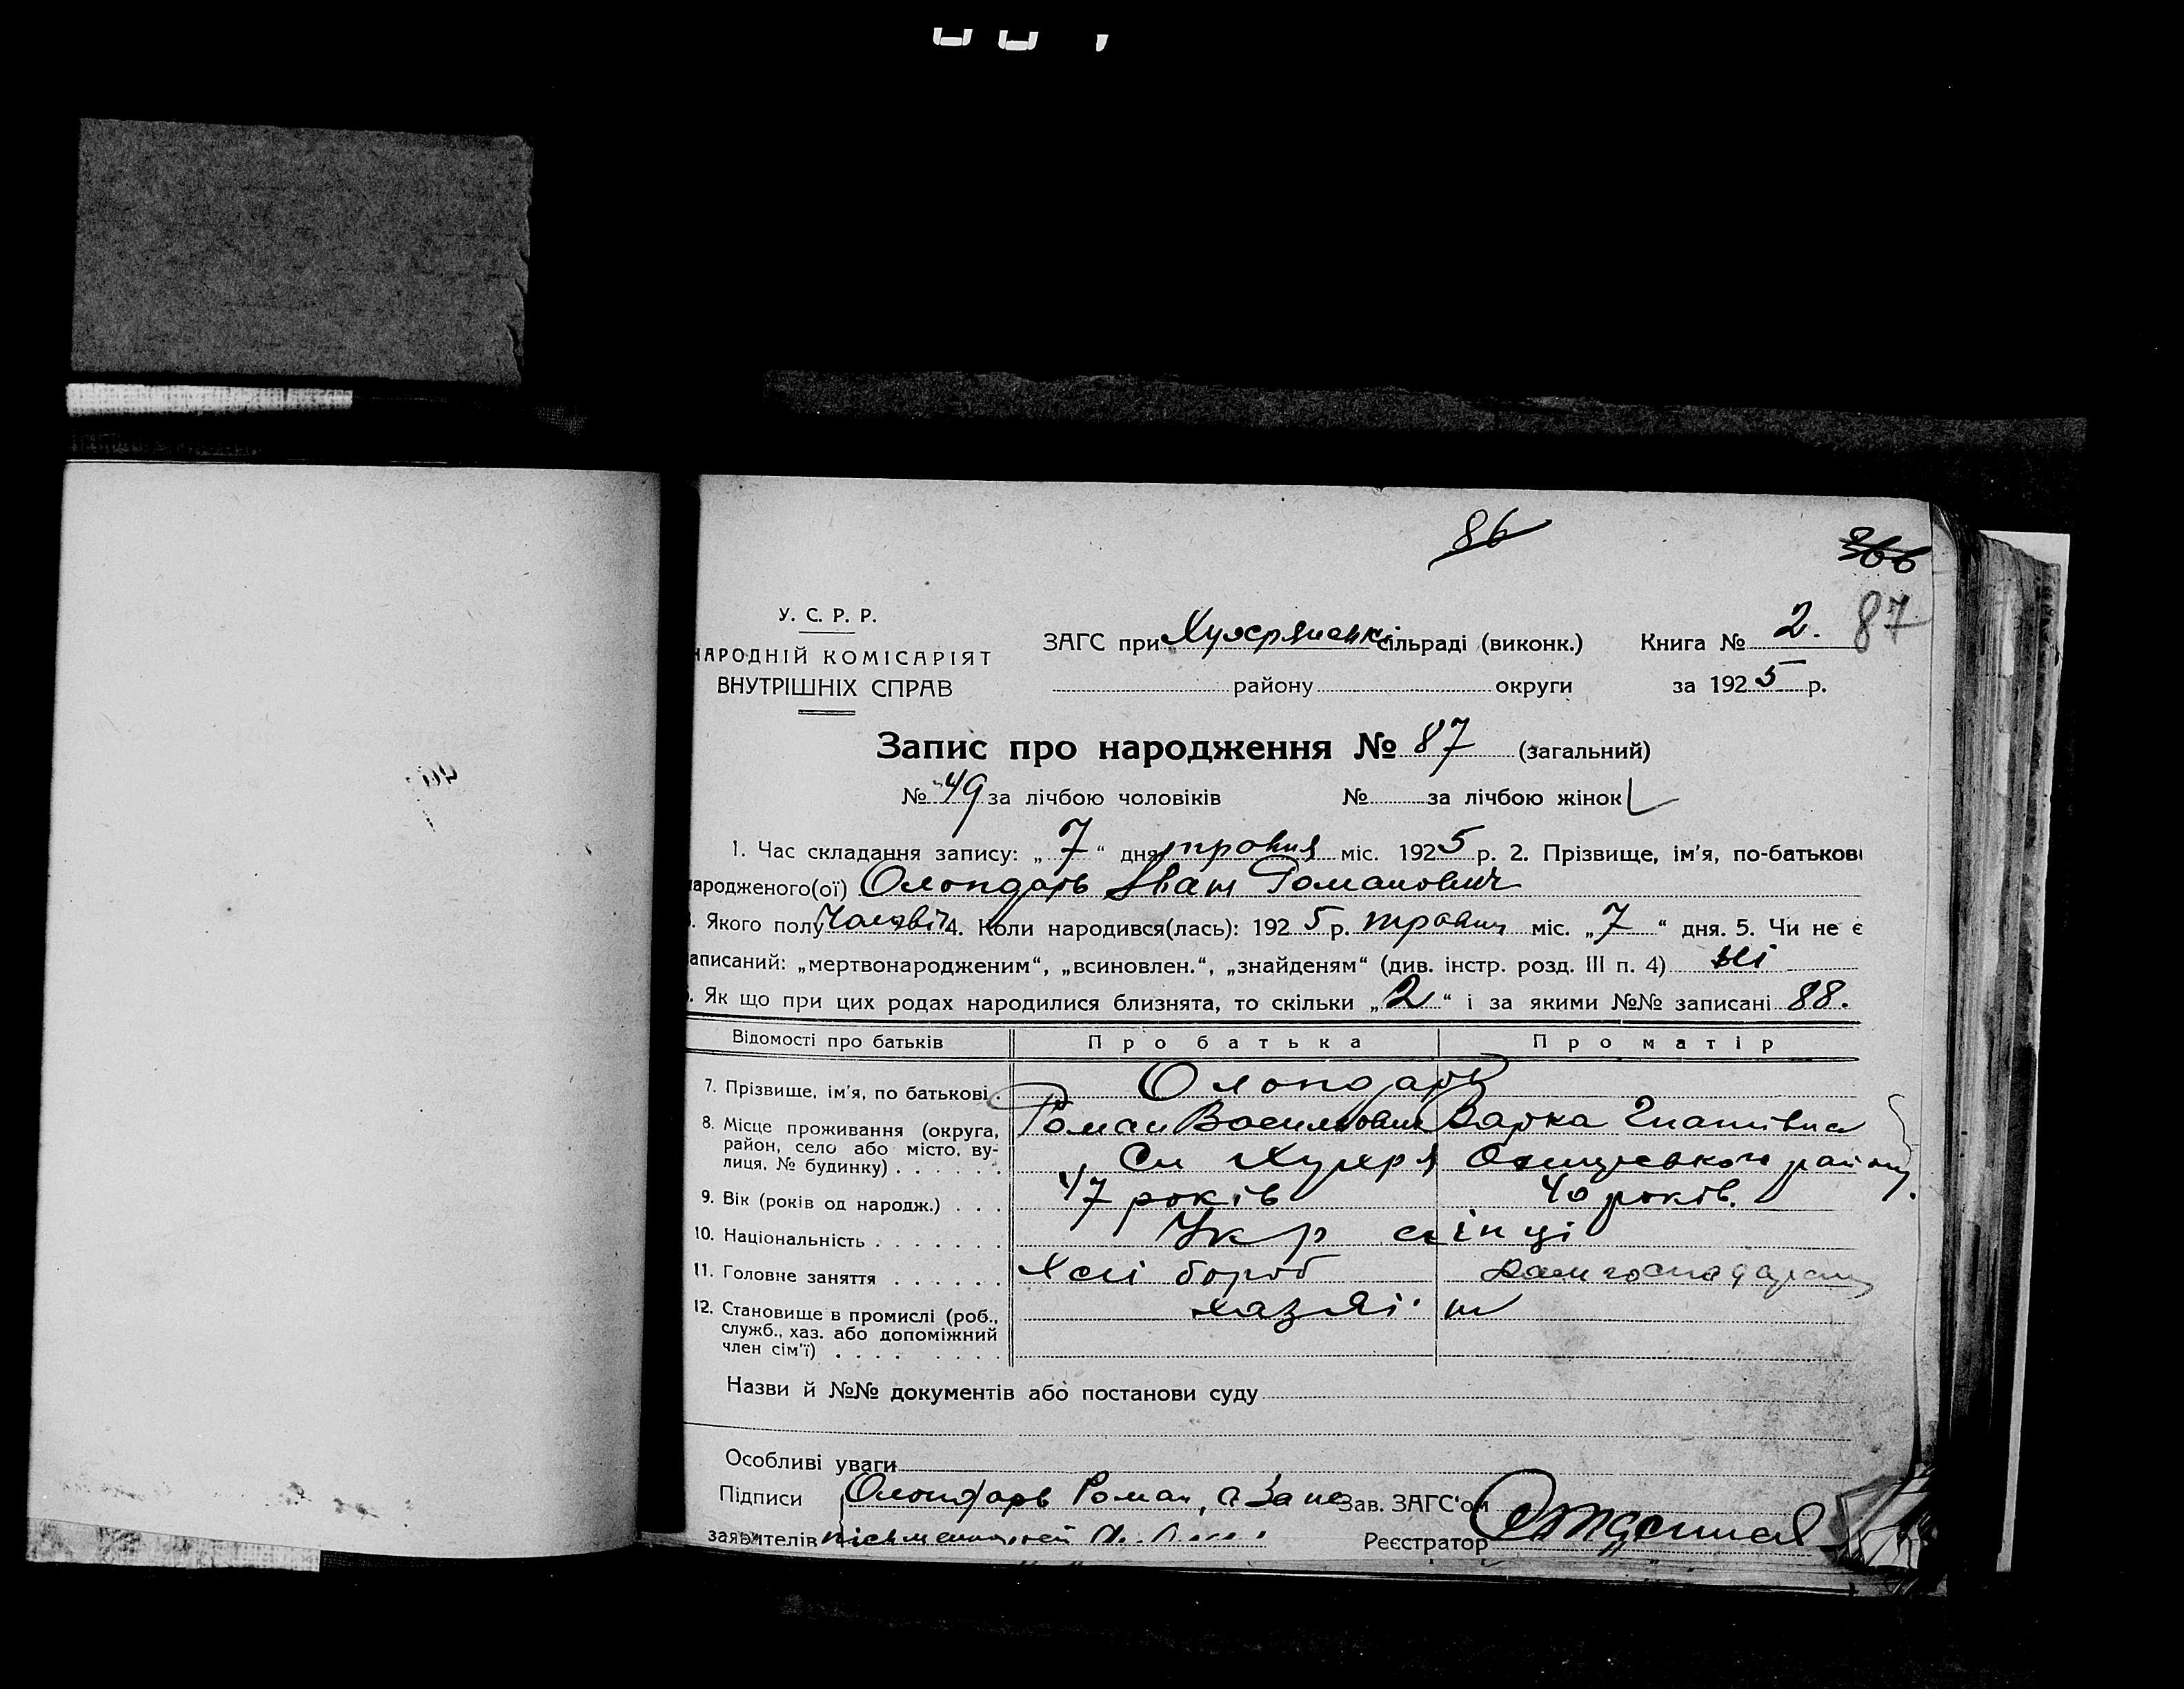 86
366
87
У. С. Р. Р.
НАРОДНІЙ КОМІСАРІЯТ
ВНУТРІШНІХ СПРАВ
ЗАГС при сільраді (виконк.)
району округи
Книга № 2.
за 1925 р.
Запис про народження № 87 (загальний)
№ 49 за лічбою чоловіків № за лічбою жінок
1. Час складання запису: „7“ дня травня міс. 1925 р. 2. Прізвище, ім'я, по-батькові
народженого(ої) Олондарь Іван Романович
Якого полу Чоловіч 4. Коли народився(лась): 1925 р. травня міс. „7“ дня. 5. Чи не є
аписаний: „мертвонародженим“, „всиновлен.“, „знайденям“ (див. інстр. розд. III п. 4) ні
Як що при цих родах народилися близнята, то скільки „2“ і за якими №№ записані 88.
Відомості про батьків Про батька Про матір
7. Прізвище, ім'я, по батькові. Олондарь
Роман Васильович Варка Гнатівна
8. Місце проживання (округа, район, село або місто, вулиця, № будинку) Хухря району
9. Вік (років од народж.) 47 років 40 років.
10. Національність Укр аінці
11. Головне заняття Хлібороб
12. Становище в промислі (роб., служб., хаз. або допоміжний член сім'ї) хазяїн
Назви й №№ документів або постанови суду
Особливі уваги
Підписи Олондарь Роман, а за не
заявителів письменного
Зав. ЗАГС'ом
Реєстратор